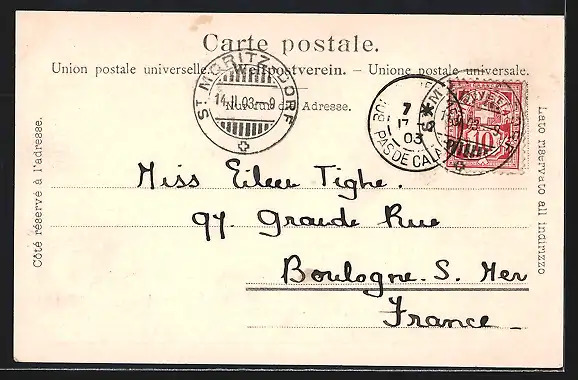 Carte postale.
Union postale universelle. Weltpostverein. – Unione postale universale.
Nur für die Adresse.
ST. MORITZ-DORF
14.II.03–9
PAS DE CALAIS
7
17
03
10
Côté réservé à l'adresse.
Lato riservato all indirizzo
Miss Eileen Tighe.
97. Grande Rue
Boulogne. S. Mer
France